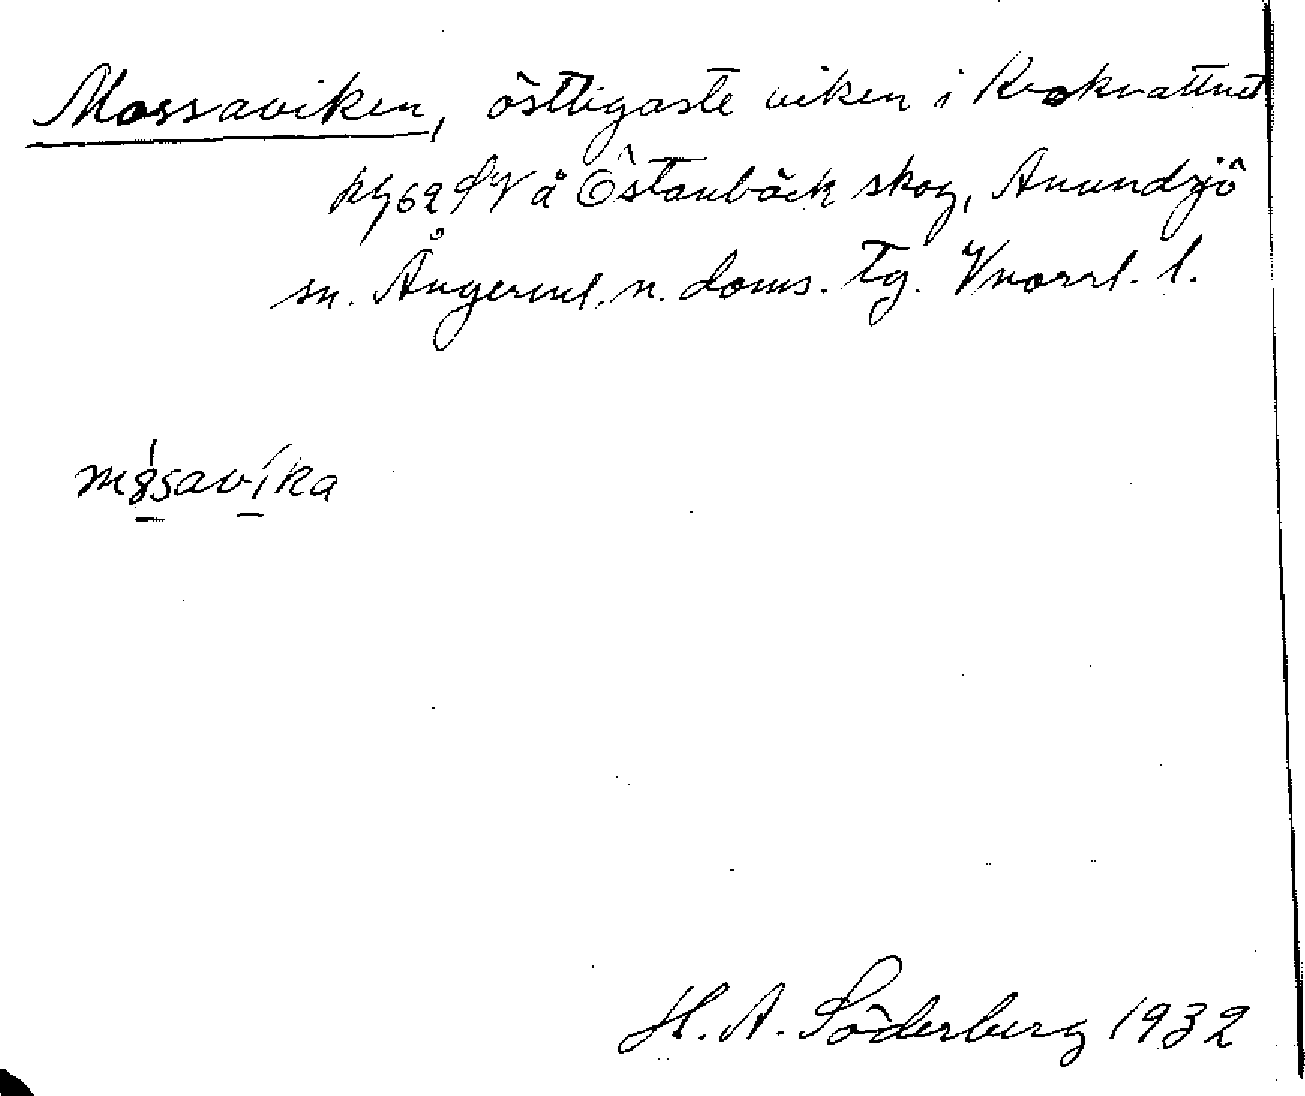 Mossaviken, östligaste viken i Krokvattnet
kfg 62 SV å Östanbäck skog, Anundsjö
sn. Ångerml. n. doms. tg. Vnorrl. l.
mósavíka
H. A. Söderberg 1932